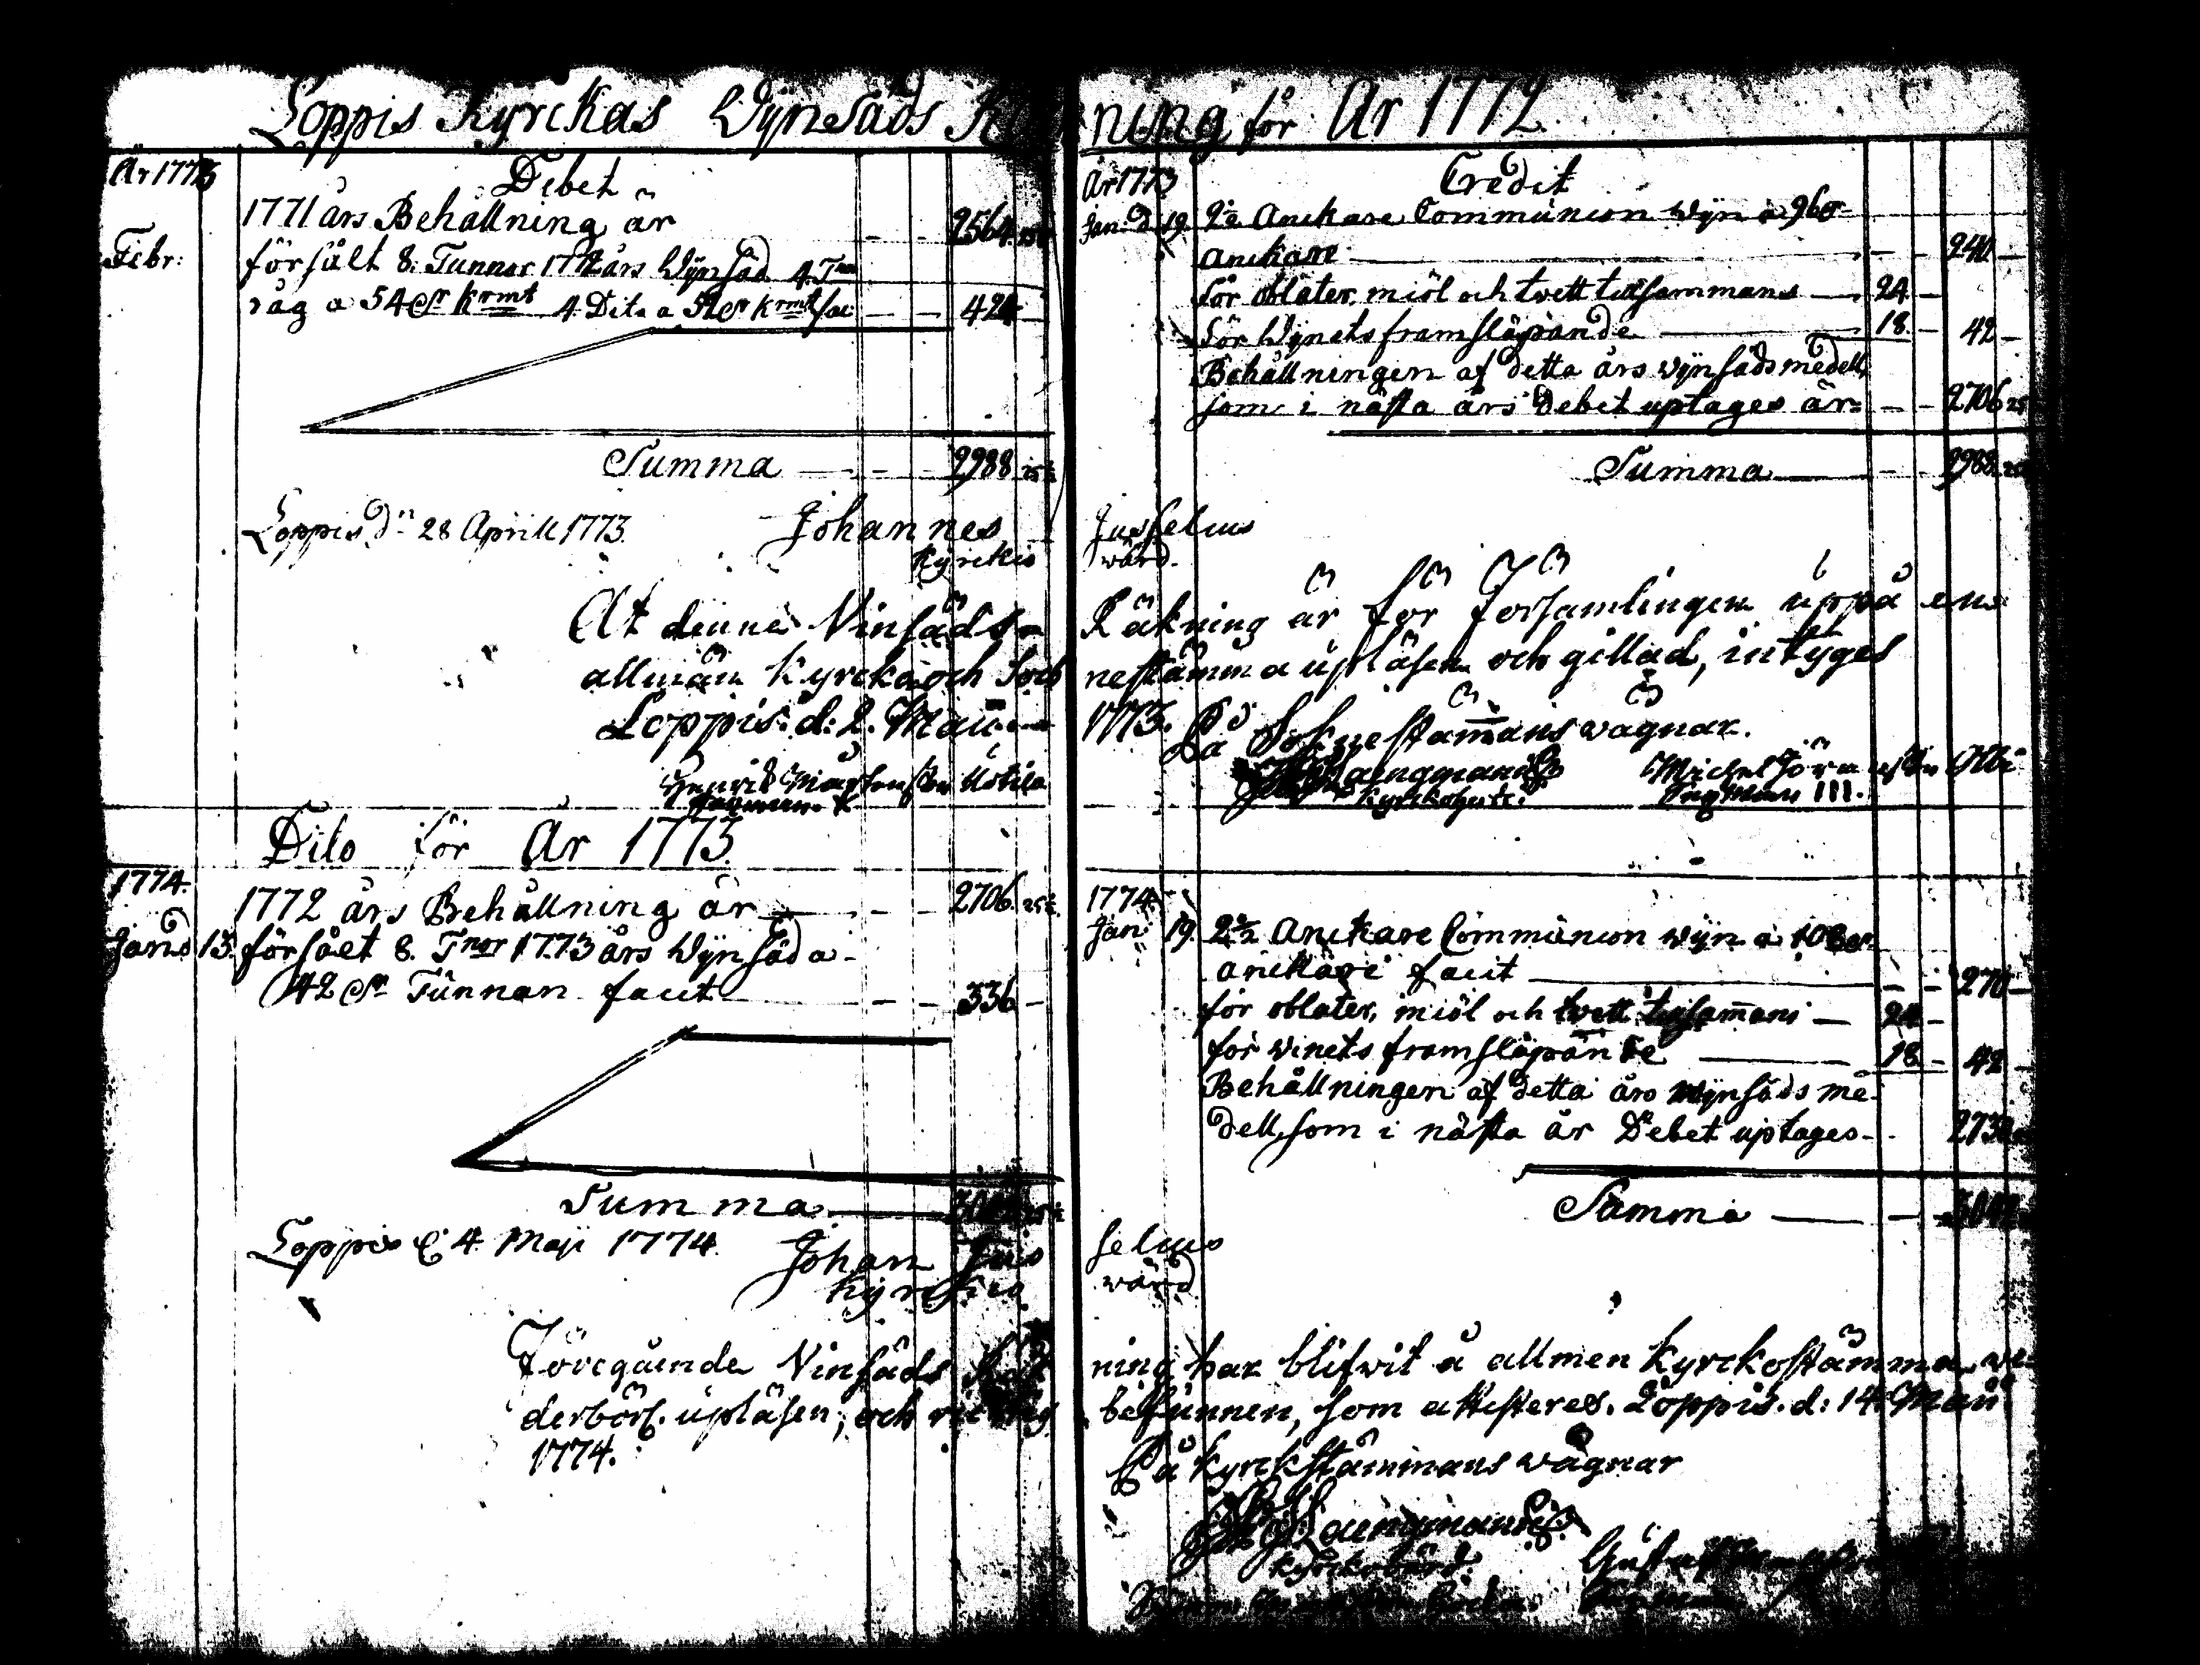 Loppis Kyrckas Wÿnsäds Räkning för År 1772
År 1773
Debet
1771 års Behållning är 2564 25½
Febr: försålt 8. Tunnor 1772 års Wÿnsäd 4. Tnr
råg a 54 Dr Krmt 4 Dito a 52 Dr Krmt fac 424
Summa 2988 25½
År 1773
Credit
Jan: d 19 2½ Anckare Communion Wÿn a 96 Dr
Anckare 240
för oblater, miöl och tvett tilsammans 24
för Wÿnets framsläpande 18 42
Behållningen af detta års Wÿnsädsmedell,
som i nästa års Debet uptages är 2706 25
Summa 2988 25
Loppis dn 28 Aprill 1773. Johannes Jusselius
Kyrckio wärd.
At denne Vinsäds Räkning är för Församlingen uppå en
allmän Kyrcko och Sochnestämma upläsen och gillad, intyges
Loppis. d: 2. Maii 1773. På Sokne stämans vägnar.
Henrik Mårtensson Ustila Michel Jöransson Olli
Kyrckoherde.
Dito för År 1773.
1774.
1772 års Behållning är 2706. 25½
Jan: 13. försålt 8. Tnor 1773 års Wÿnsäd a
42 Dr Tunnan facit 336
Summa 3042 25½
1774
Jan: 19 2½ Anckare Communion wÿn a 108 Dr
anckare facit 270
för oblater, miöl och tvett tilsamans 24
för winets framsläpande 18 42
Behållningen af detta års Wÿnsäds me-
dell, som i nästa år Debet uptages 2730
Summa 3042
Loppis d 4 Maji 1774. Johan Jusselius
Kyrckio wärd
Föregående Vinsäds Räkning har blifwit å allmen Kyrckostämma we-
derbörl. upläsen, och richtig befunnen, som attesteres. Loppis. d: 14 Maii
1774.
På Kyrckstämmans wägnar